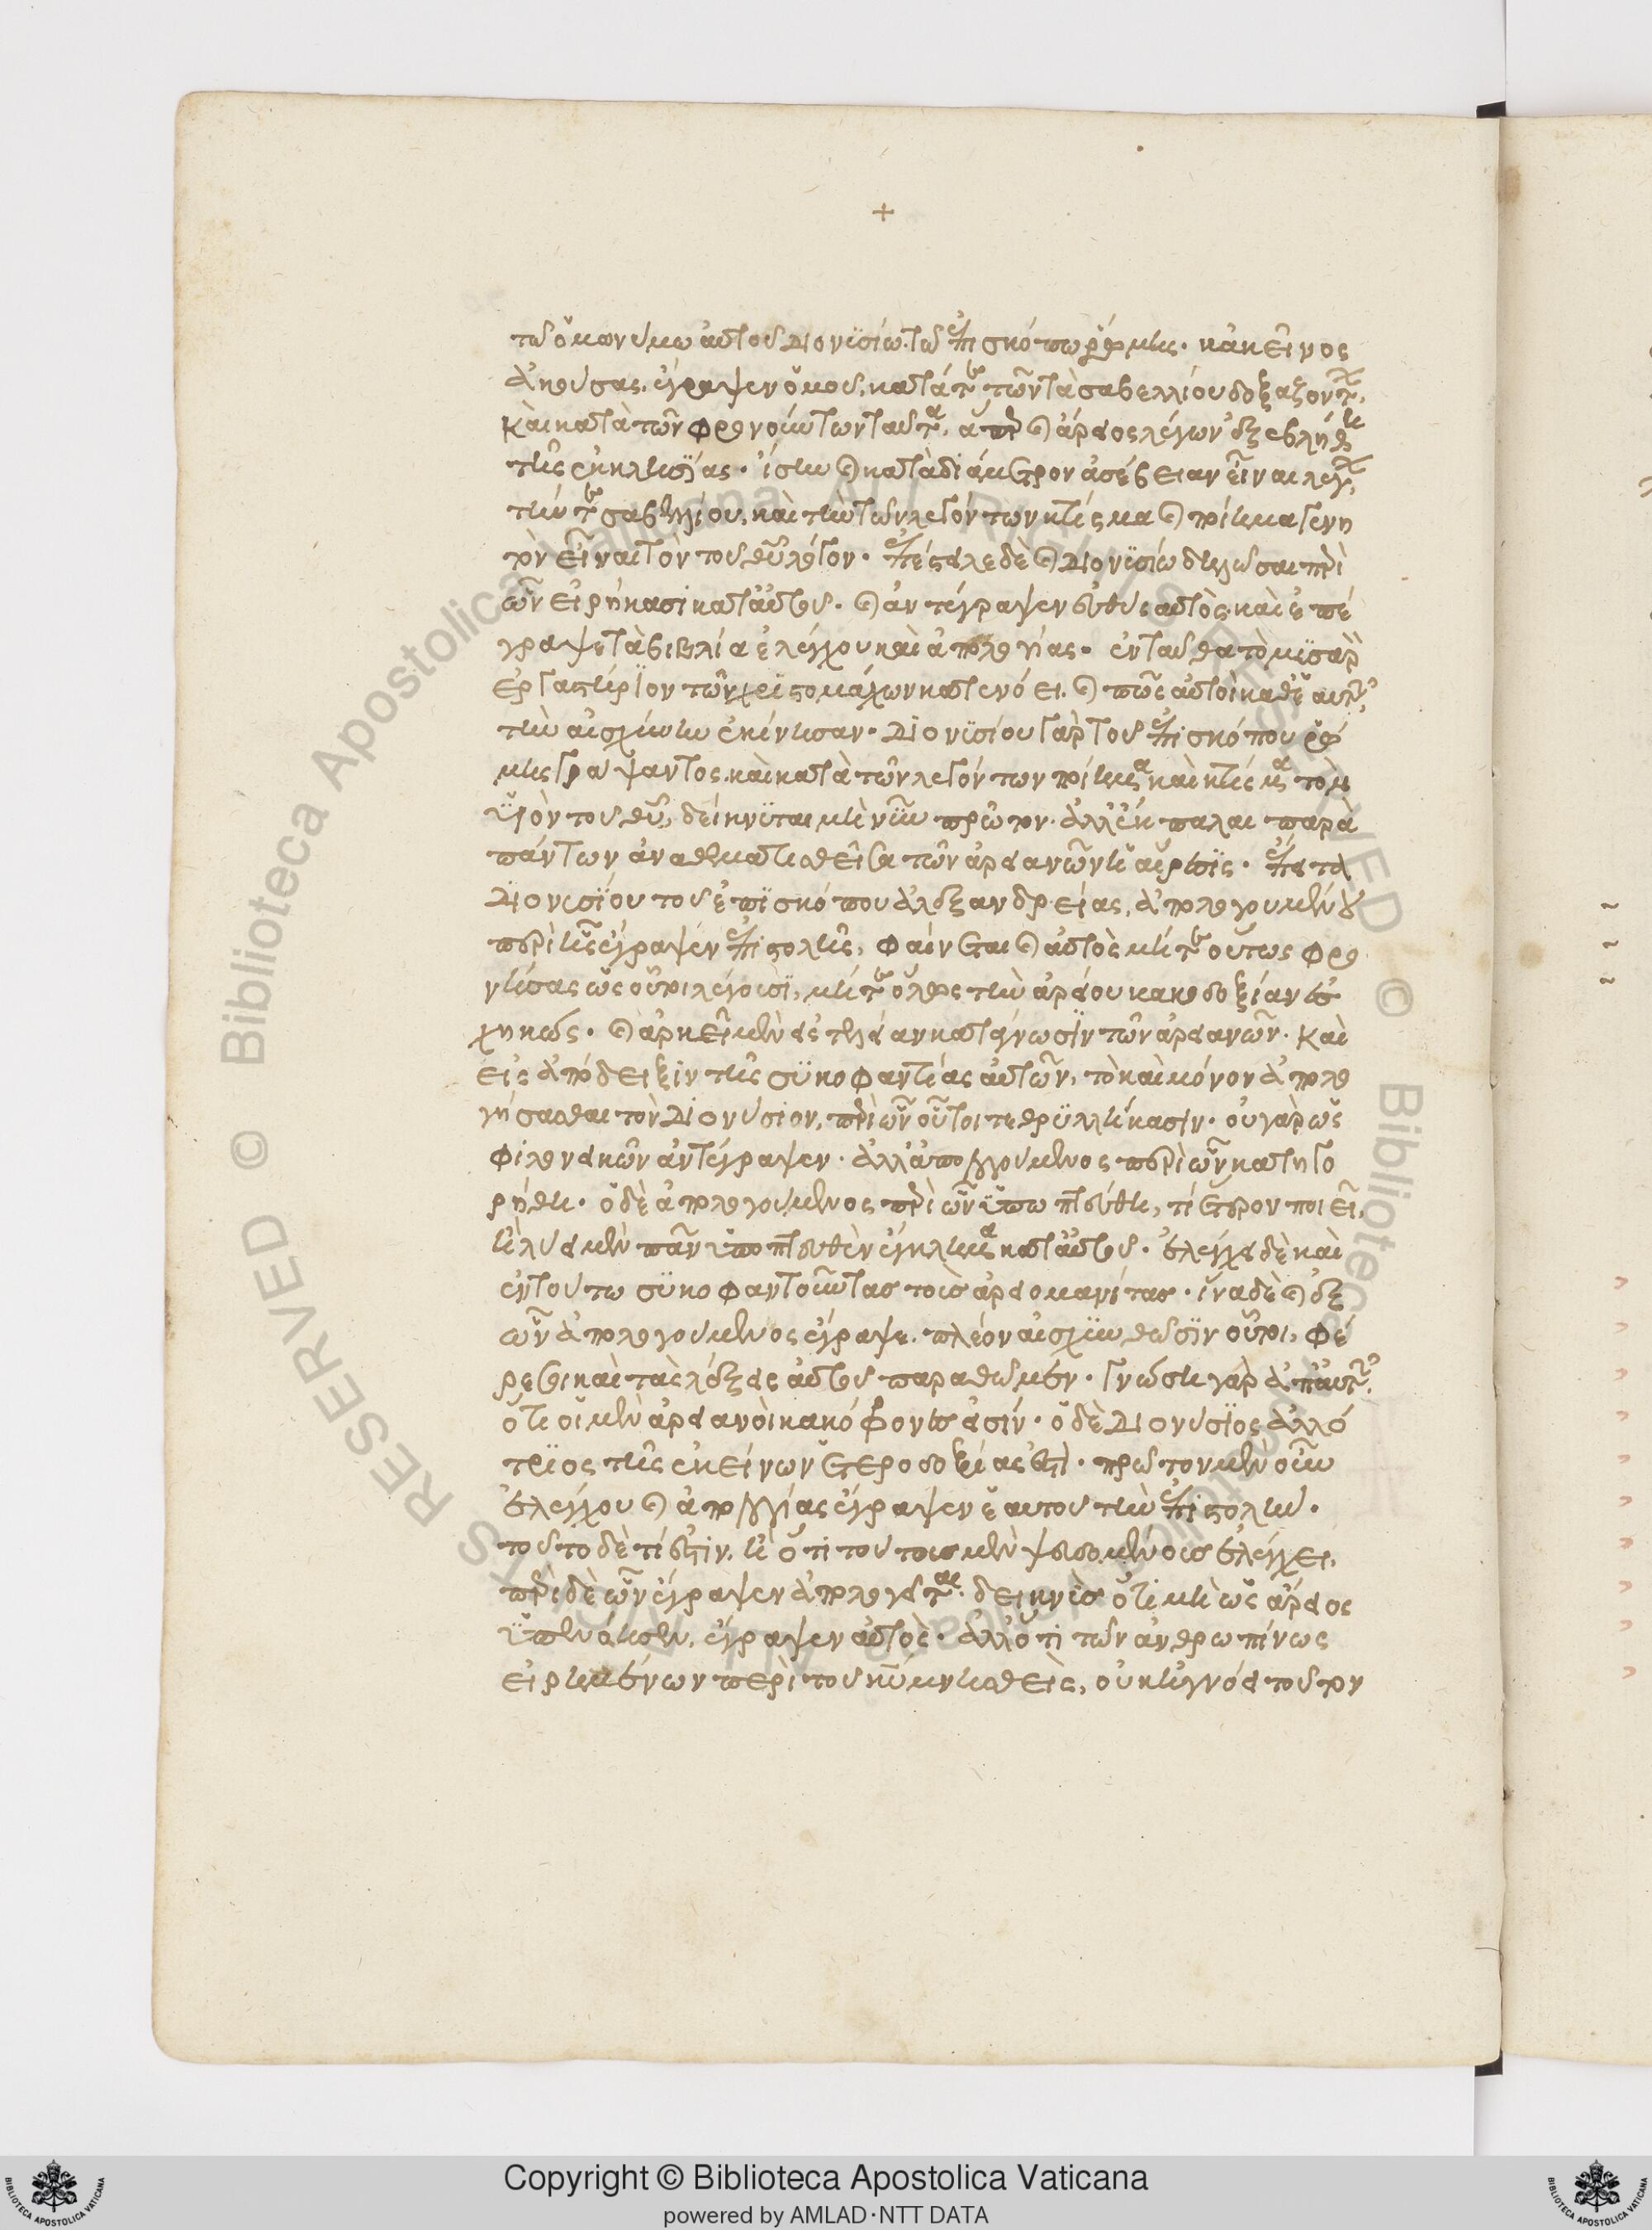 +
τῶ ὁμωνύμω αὐτοῦ διονυσίω τῶ ἐπισκόπω ῥώμης· κἀκεῖνος
ἀκούσας, ἔγραψεν ὁμοῦ, κατά τε τῶν τὰ σαβελλίου δοξαζόντων,
καὶ κατὰ τῶν φρονούντων ταῦτα, ἅπερ καὶ ἄρειος λέγων ἐξεβλήθη
τῆς ἐκκλησίας· ἴσην καὶ κατὰ διάμετρον ἀσέβειαν εἶναι λέγων,
τήν τε σαβελλίου, καὶ τὴν τῶν λεγόντων κτίσμα καὶ ποίημα γενη
τὸν εἶναι τὸν τοῦ θυ λόγον· ἐπέστειλε δὲ καὶ διονυσίω δηλῶσαι περὶ
ὧν εἰρήκασι κατ' αὐτοῦ· καὶ ἀντέγραψεν εὐθὺς αὐτὸς, καὶ ἐπέ
γραψε τὰ βιβλία ἐλέγχου καὶ ἀπολογίας· ἐνταῦθα τὸ μυσαρὸν
ἐργαστήριον τῶν χριστομάχων κατενόει· καὶ πῶς αὐτοὶ καθ' ἑαυτῶν,
τὴν αἰσχύνην ἐκίνησαν· διονυσίου γὰρ τοῦ ἐπισκόπου ῥώ
μης γράψαντος, καὶ κατὰ τῶν λεγόντων ποίημα καὶ κτίσμα τὸν
υἱὸν τοῦ θυ, δείκνυται μὴ νῦν πρῶτον· ἀλλ' ἔκπαλαι παρὰ
πάντων ἀναθεματισθεῖσα τῶν ἀρειανῶν ἡ αἵρεσις· ἔπειτα
διονυσίου τοῦ ἐπισκόπου ἀλεξανδρείας, ἀπολογουμένου
περὶ ἧς ἔγραψεν ἐπιστολῆς, φαίνεται καὶ αὐτὸς μήτε οὕτως φρο
νήσας ὡς οὗτοι λέγουσι, μήτε ὅλως τὴν ἀρείου κακοδοξίαν ἐσ
χηκώς· καὶ ἀρκεῖ μὲν εἰς τελείαν κατάγνωσιν τῶν ἀρειανῶν· καὶ
εἰς ἀπόδειξιν τῆς συκοφαντίας αὐτῶν, τὸ καὶ μόνον ἀπολο
γήσασθαι τὸν διονύσιον, περὶ ὧν οὗτοι τεθρυλλήκασιν· οὐ γὰρ ὡς
φιλονεικῶν ἀντέγραψεν· ἀλλ' ἀπολογούμενος περὶ ὧν κατηγο
ρήθη· ὁ δὲ ἀπολογούμενος περὶ ὧν ὑπωπτεύθη, τί ἕτερον ποιεῖ,
ἢ λύει μὲν πᾶν ὑποπτευθὲν ἔγκλημα κατ' αὐτοῦ· ἐλέγχει δὲ καὶ
ἐν τούτω συκοφαντοῦντας τοὺς ἀρειομανίτας· ἵνα δὲ καὶ ἐξ
ὧν ἀπολογούμενος ἔγραψε, πλέον αἰσχυνθῶσιν οὗτοι, φέ
ρε καὶ τὰς λέξεις αὐτοῦ παραθῶμεν· γνώση γὰρ ἀπ' αὐτῶν,
ὅτι οἱ μὲν ἀρειανοὶ κακόφρονες εἰσίν· ὁ δὲ διονύσιος ἀλλό
τριος τῆς ἐκείνων ἑτεροδοξίας ἐστί· πρῶτον μὲν οὖν
ἐλέγχου καὶ ἀπολογίας ἔγραψεν ἑαυτοῦ τὴν ἐπιστολήν·
τοῦτο δὲ τί ἐστιν, ἢ ὅτι τοὺς μὲν ψευσομένους ἐλέγχει,
περὶ δὲ ὧν ἔγραψεν ἀπολογεῖται· δεικνὺς ὅτι μὴ ὡς ἄρειος
ὑπενόησεν, ἔγραψεν αὐτὸς· ἀλλ' ὅτι τῶν ἀνθρωπίνως
εἰρημένων περὶ τοῦ κυ μνησθεὶς, οὐκ ἠγνόει τοῦτον
Copyright © Biblioteca Apostolica Vaticana
powered by AMLAD·NTT DATA